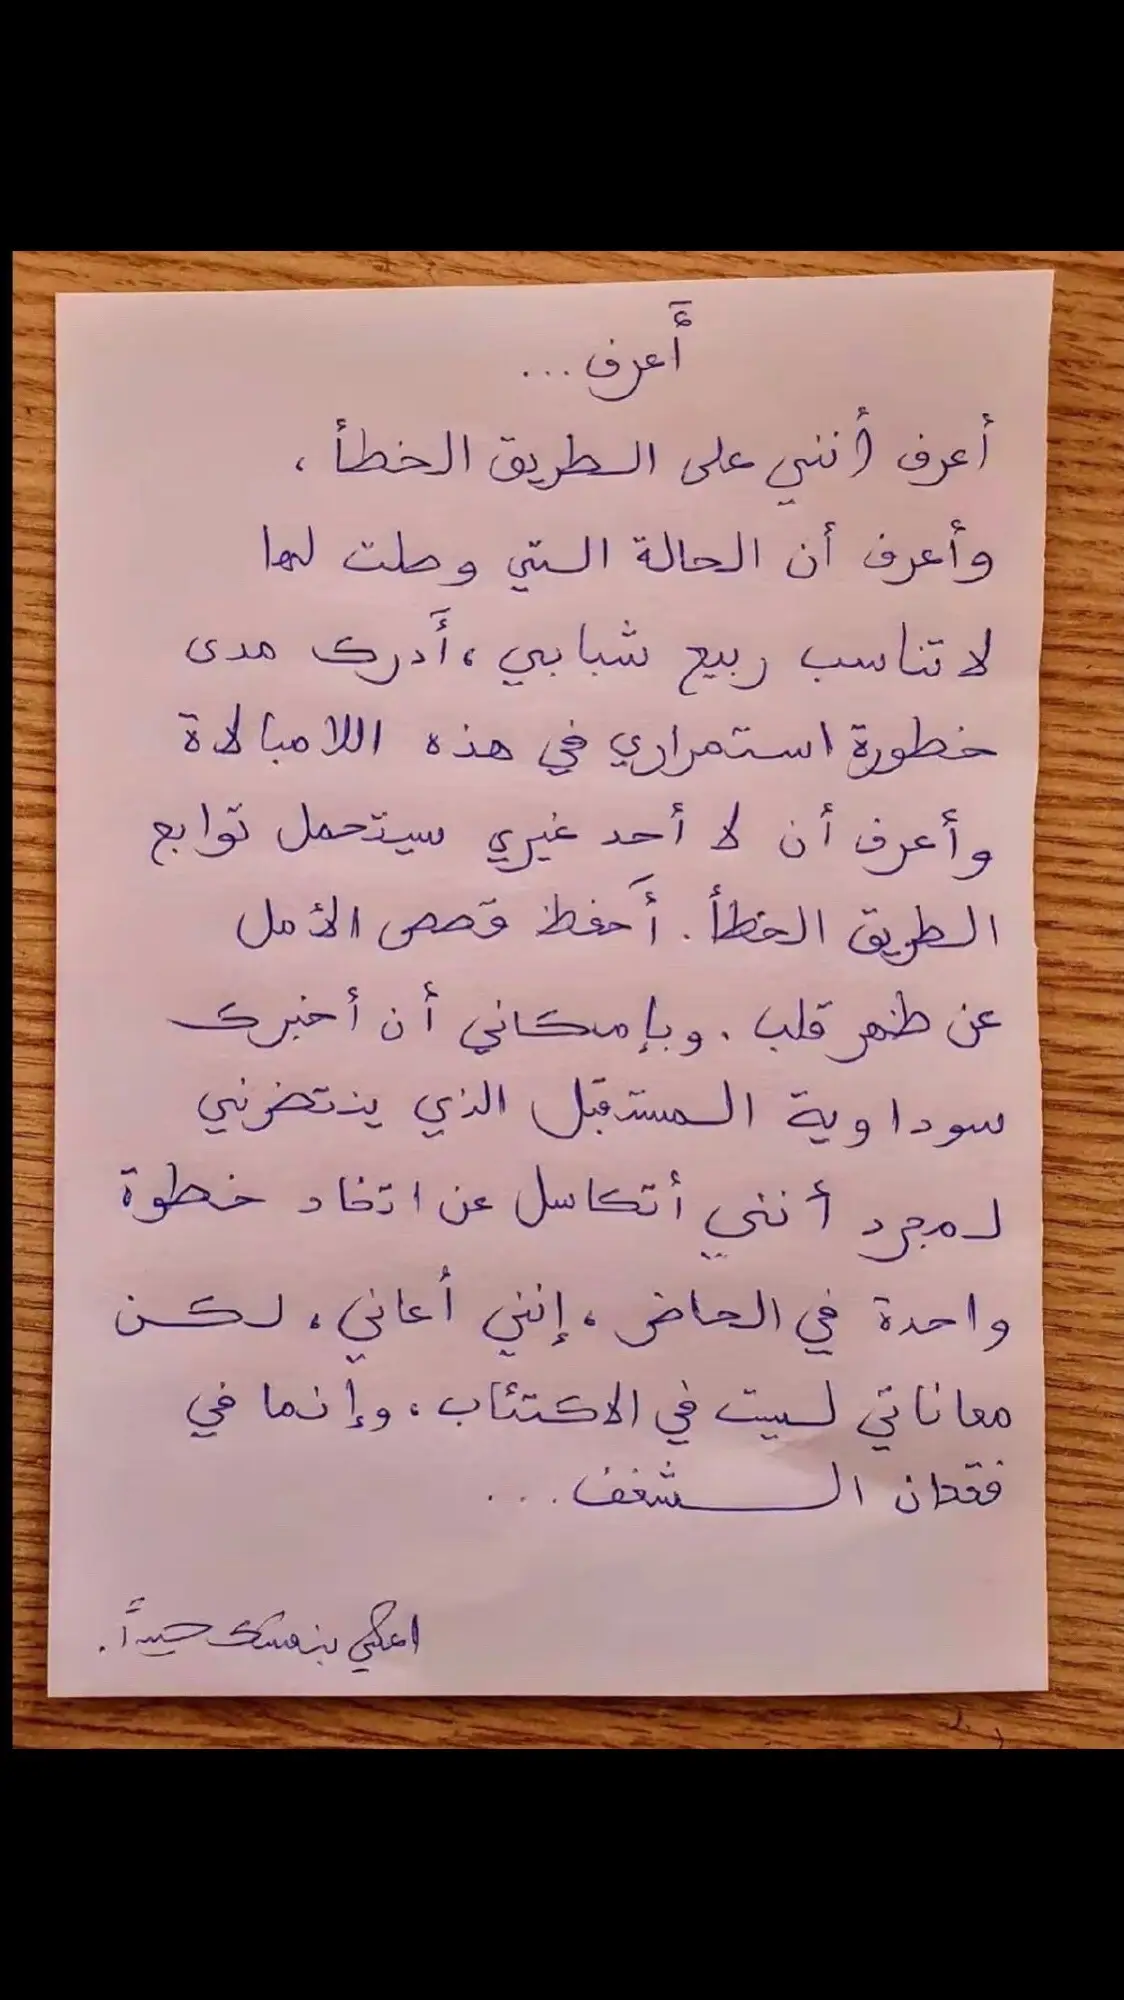 أَعرف ...
أعرف أنني على الطريق الخطأ ،
وأعرف أن الحالة التي وصلت لها
لا تناسب ربيع شبابي ، أَدرك مدى
خطورة استمراري في هذه اللامبالاة
وأعرف أن لا أحد غيري سيتحمل توابع
الطريق الخطأ . أَحفظ قصص الأمل
عن ظهر قلب . وبإمكاني أن أخبرك
سوداوية المستقبل الذي ينتضرني
لمجرد أنني أتكاسل عن اتخاد خطوة
واحدة في الحاضر ، إنني أعاني ، لكن
معاناتي ليست في الاكتئاب ، وإنما في
فقدان الشغف ...
اعتني بنفسك جيداً .